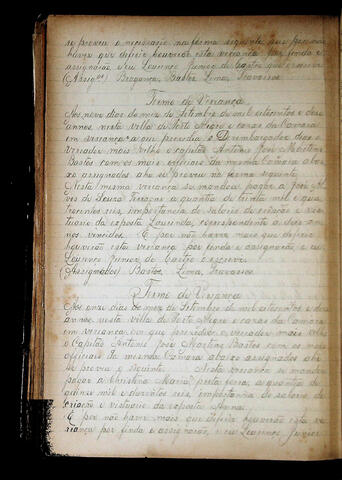 se proveu a vereação na forma seguinte
houverão esta veriança por finda e
assignarão. Eu, Lourenço Junior de Castro que escrevi
(Assigos) Bragança, Bastos, Lima, Travassos
Termo de Veriança
Aos nove dias do mez de Setembro de mil oitocentos e dois
annos, nesta villa de Porto Alegre e casas da Camara
em veriança a que presedio o
vereador mais velho o Capitão Antonio José Martins
Bastos com os mais officiaes da mesma Camara abai
xo assignados ahi se proveu na forma seguinte
Nesta mesma veriança se mandou pagar a José Al
ves de a quantia de trinta mil e qua
trocentos reis, importancia do salario de criação e ves
tuario da exposta Lourinda, correspondente a dois an
nos vencidos. E por não haver mais que deferir
houverão esta veriança por finda e assignarão, e eu
Lourenço Junior de Castro o escrevi
(Assignados) Bastos, Lima, Travassos
Termo de Veriança
Aos onze dias do mez de Setembro de mil oitocentos e dois
annos, nesta villa de Porto Alegre e casas da Camara
em veriança em que presedio o vereador mais velho
o Capitão Antonio José Martins Bastos com os mais
officiaes da mesma Camara abaixo assignados ahi
se proveu o seguinte. Nesta veriança se mandou
pagar a Christina Maria, preta forra, a quantia de
quinze mil e duzentos reis, importancia do salario de
criação e vestuario da exposta Anna.
E por não haver mais que deferir houverão esta ve
riança por finda e assignarão, e eu Lourenço Junior